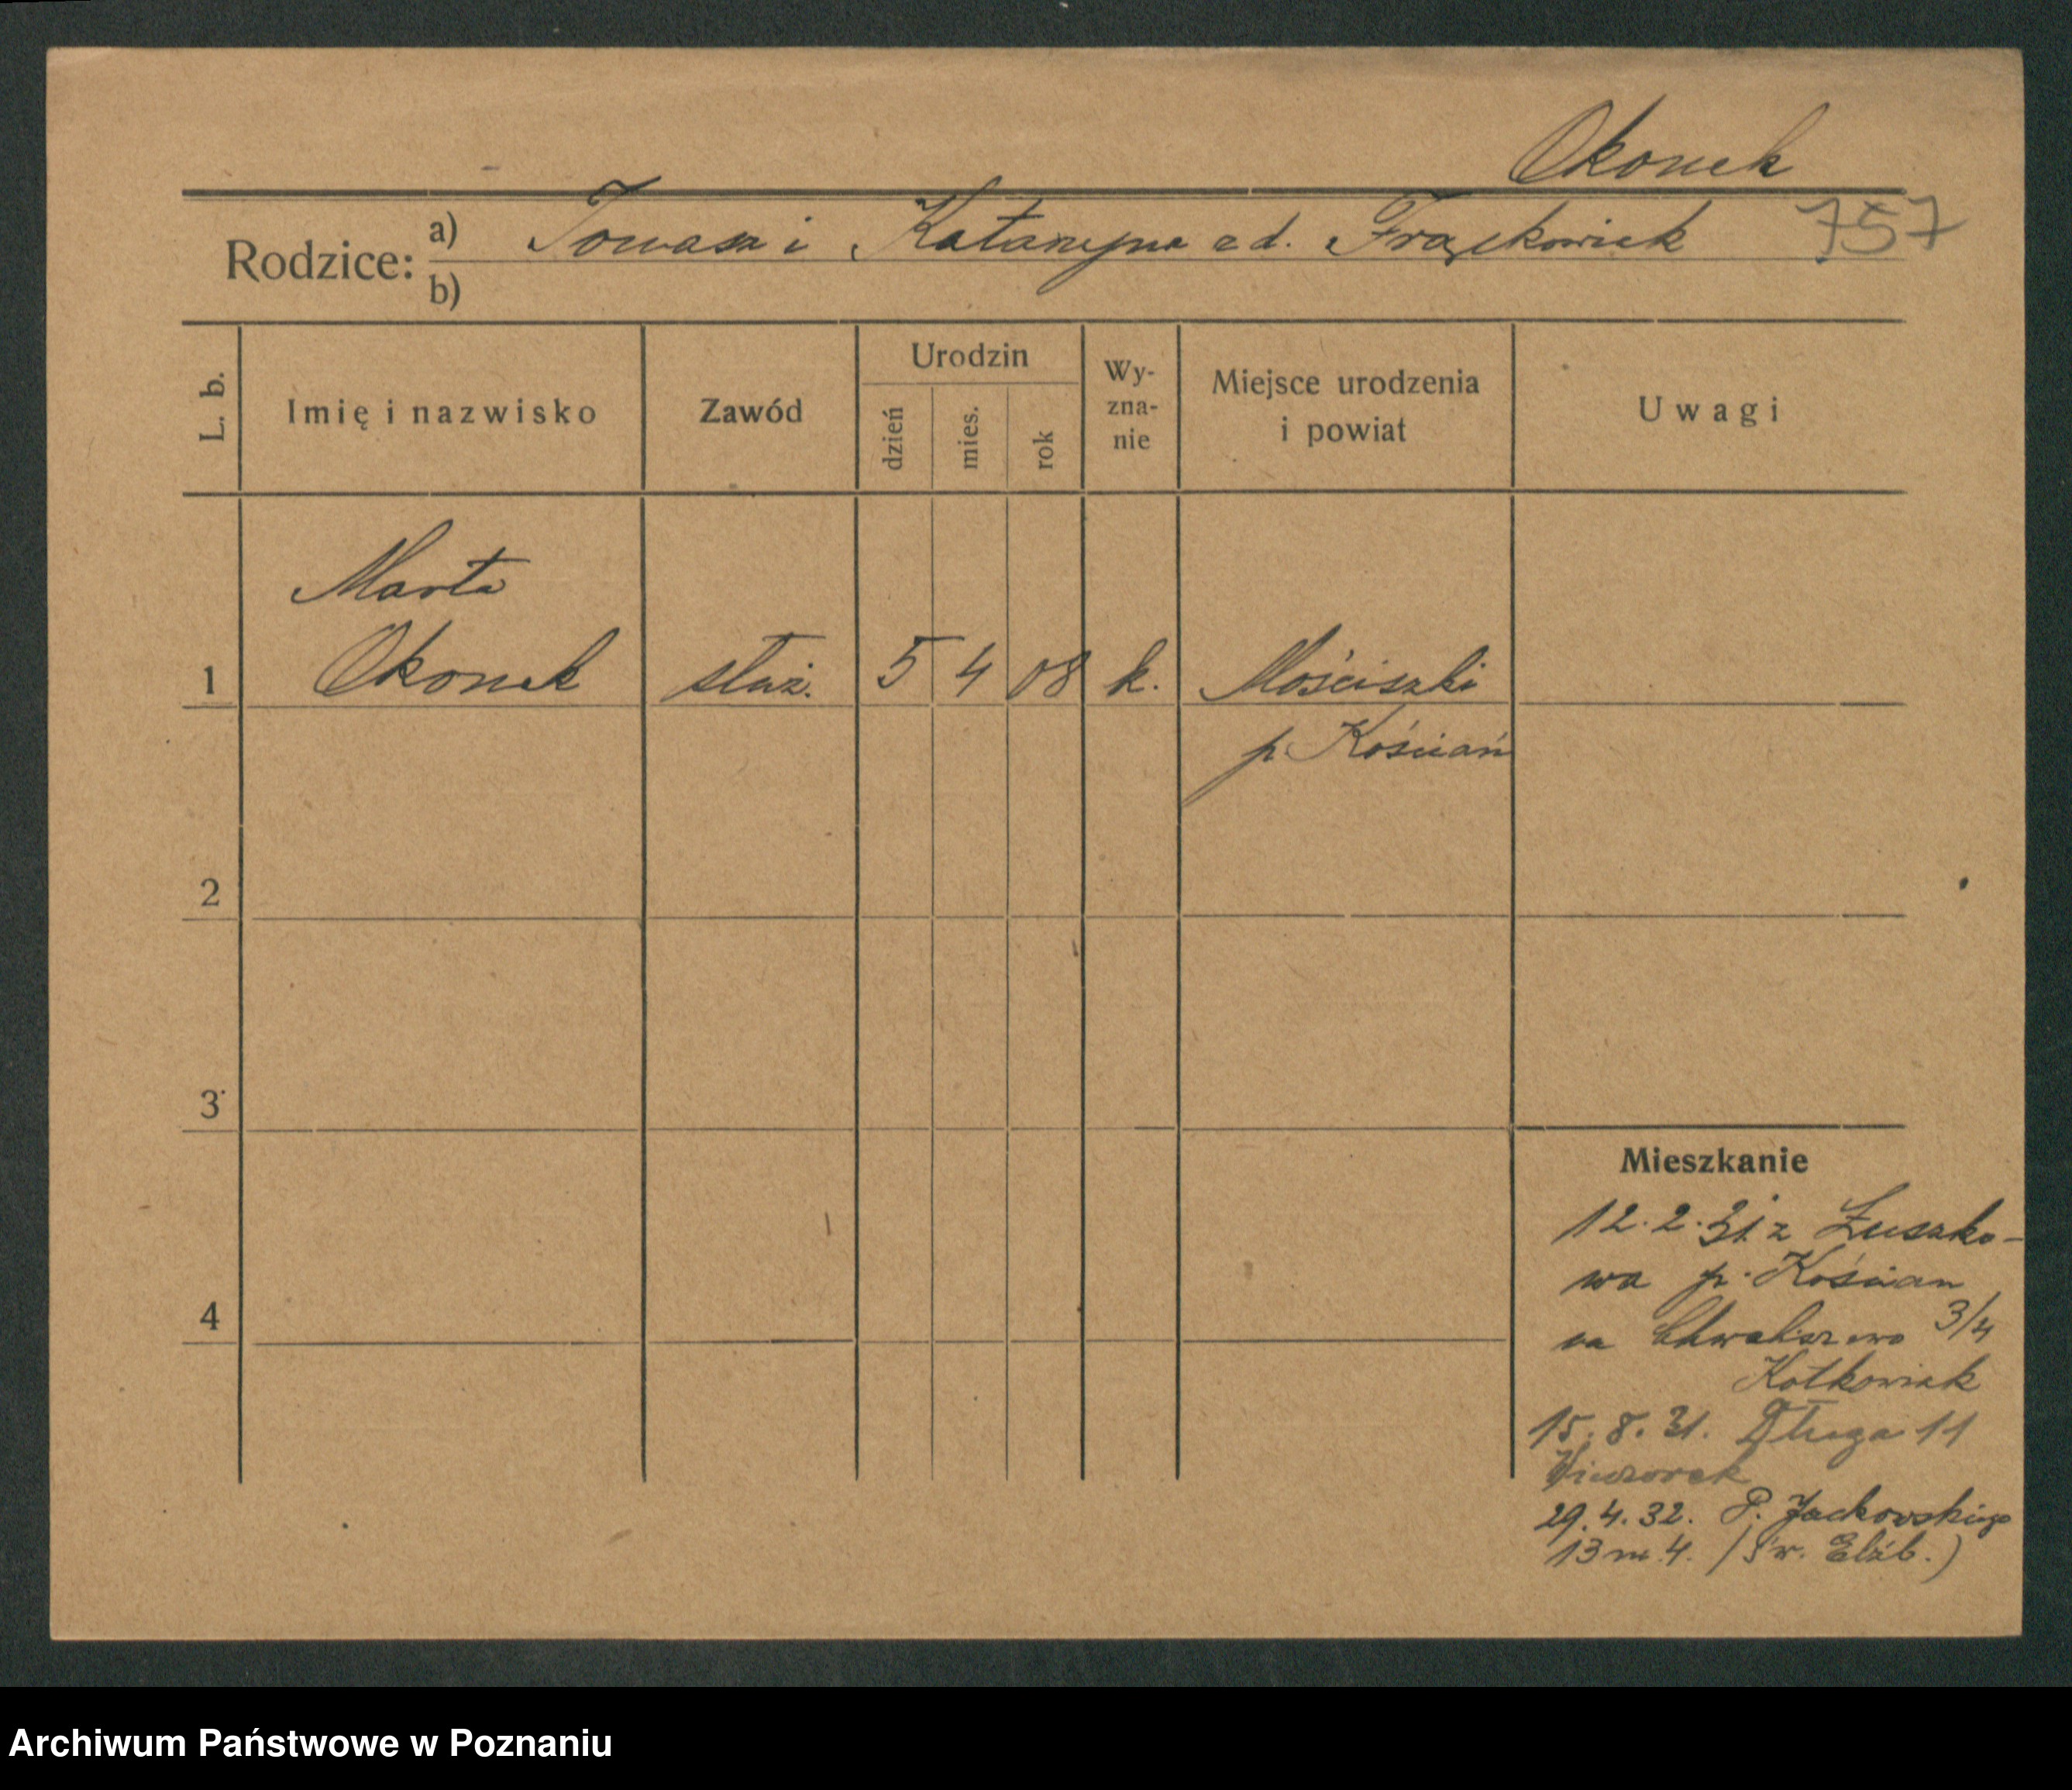 Okonek
Rodzice: a) Tomasz i Katarzyna z d. Frąckowiak 757
b)
L. b. Imię i nazwisko Zawód Urodzin dzień mies. rok Wy-zna-nie Miejsce urodzenia i powiat Uwagi
Marta
1 Okonek służ. 5 4 08 k. Mościszki
p. Kościan
2
3
4
Mieszkanie
12.2.31. z Łuszko-
wa p. Kościan
na Chwaliszewo 3/4
Kotkowiak
15.8.31. Długa 11
Wieczorek
29.4.32. P. Jackowskiego
13 m 4. (Św. Elżb.)
Archiwum Państwowe w Poznaniu